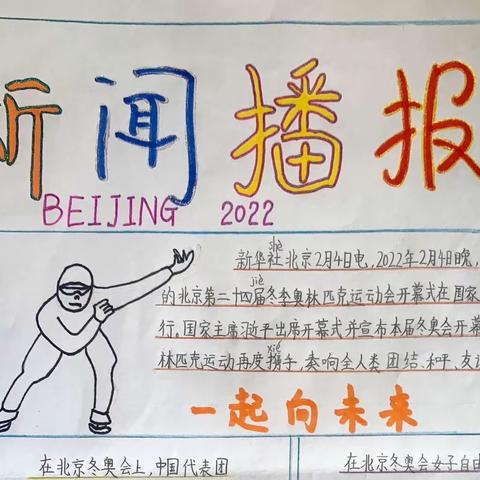 新闻播报
BEIJING 2022
shè
新华社北京2月4日电,2022年2月4日晚,
jiè
的北京第二十四届冬季奥林匹克运动会开幕式在国家
行.国家主席习近平出席开幕式并宣布本届冬奥会开幕
xié
林匹克运动再度携手,奏响全人类团结、和平、友谊
一起向未来
在北京冬奥会上,中国代表团
在北京冬奥会女子自由